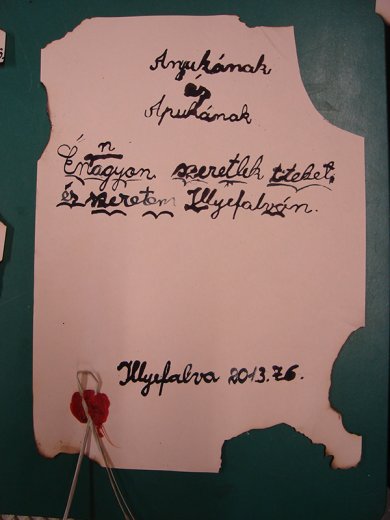 Anyukának
és
Apukának
Én nagyon szeretlek titeket,
és szeretem Illyefalván.
Illyefalva 2013.7.6.